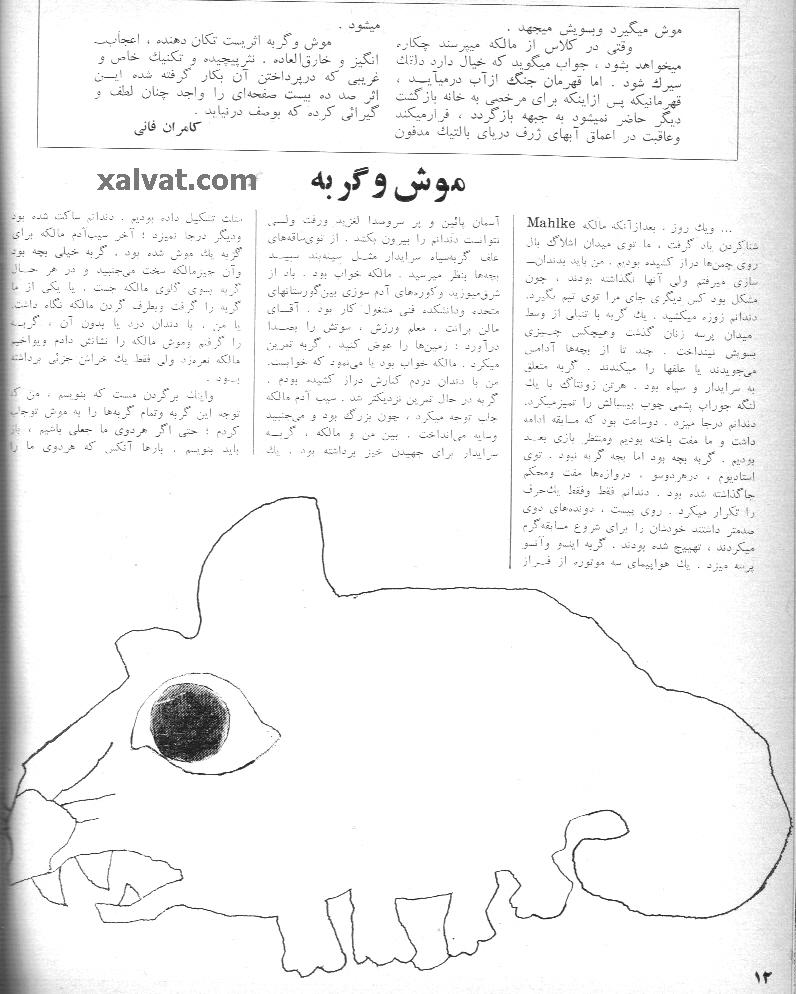 موش میگیرد وبسویش میجهد .
وقتی در کلاس از مالکه میپرسند چکاره
میخواهد بشود ، جواب میگوید که خیال دارد دلقك
سیرك شود . اما قهرمان جنگ ازآب درمیآیـد ،
قهرمانیکه پس ازاینکه برای مرخصی به خانه بازگشت
دیگر حاضر نمیشود به جبهه بازگردد ، فرارمیکند
وعاقبت در اعماق آبهای ژرف دریای بالتیك مدفون
میشود .
موش وگربه اثریست تکان دهنده ، اعجاب‌ـ
انگیز و خارق‌العاده . نثرپیچیده و تکنیك خاص و
غریبی که درپرداختن آن بکار گرفته شده ایـن
اثر صد ده بیست صفحه‌ای را واجد چنان لطف و
گیرائی کرده که بوصف درنیاید .
کامران فانی
xalvat.com
موش و گربه
... ویك روز ، بعدازآنکه مالکه Mahlke
شناکردن یاد گرفت ، ما توی میدان اشلاگ بال
روی چمن‌ها دراز کشیده بودیم . من باید بدندان‌ـ
سازی میرفتم ولی آنها نگذاشته بودند ، چون
مشکل بود کس دیگری جای مرا توی تیم بگیرد.
دندانم زوزه میکشید . یك گربه با تنبلی از وسط
میدان پرسه زنان گذشت وهیچکس چیـزی
بسویش نینداخت . چند تا از بچه‌ها آدامس
می‌جویدند یا علفها را میکندند . گربه متعلق
به سرایدار و سیاه بود . هرتن زونتاگ با یك
لنگه جوراب پشمی چوب بیسبالش را تمیزمیکرد.
دندانم درجا میزد . دوساعت بود که مسابقه ادامه
داشت و ما مفت باخته بودیم ومنتظر بازی بعـد
بودیم . گربه بچه بود اما بچه گربه نبود . توی
استادیوم ، درهردوسو ، دروازه‌ها مفت ومحکم
جاگذاشته شده بود . دندانم فقط وفقط یك‌حرف
را تکرار میکرد . روی پیست ، دونده‌های دوی
صدمتر داشتند خودشان را برای شروع مسابقه‌گرم
میکردند ، تهییج شده بودند . گربه اینسو وآنسو
پرسه میزد . یك هواپیمای سه موتوره از فـراز
آسمان پائین و پر سروصدا لغزید ورفت ولـی
نتوانست دندانم را بیرون بکشد . از توی‌ساقه‌های
علف گربه‌سیاه سرایدار مثـل سینه‌بند سپیـد
بچه‌ها بنظر میرسید . مالکه خواب بود . باد از
شرق‌میوزید وکوره‌های آدم سوزی بین‌گورستانهای
متحده ودانشکده فنی مشغول کار بود . آقـای
مالن برانت ، معلم ورزش ، سوتش را بصدا
درآورد : زمین‌ها را عوض کنید . گربه تمرین
میکرد . مالکه خواب بود یا می‌نمود که خوابست.
من با دندان دردم کنارش دراز کشیده بودم .
گربه در حال تمرین نزدیکتر شد . سیب آدم مالکه
جلب توجه میکرد ، چون بزرگ بود و می‌جنبید
وسایه می‌انداخت . بین من و مالکه ، گربـه
سرایدار برای جهیدن خیز برداشته بود . یك
مثلث تشکیل داده بودیم . دندانم ساکت شده بود
ودیگر درجا نمیزد ؛ آخر سیب‌آدم مالکه برای
گربه یك موش شده بود . گربه خیلی بچه بود
وآن چیزمالکه سخت می‌جنبید و در هر حـال
گربه بسوی گلوی مالکه جست . یا یکی از ما
گربه را گرفت وبطرف گردن مالکه نگاه داشت.
یا من ، با دندان درد یا بدون آن ، گربـه
را گرفتم وموش مالکه را نشانش دادم ویواخیم
مالکه نعره‌زد ولی فقط یك خراش جزئی برداشته
بـود .
واینك برگردن منست که بنویسم ، من که
توجه این گربه وتمام گربه‌ها را به موش توجلب
کردم ؛ حتی اگر هردوی ما جعلی باشیم ، باز
باید بنویسم . بارها آنکس که هردوی ما را
۱۲